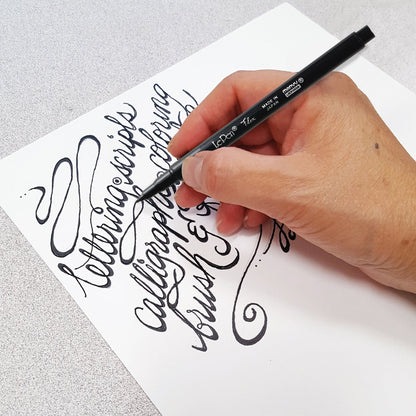 lettering scripts
calligraphy coloring
brush &
LePen® Flex
MADE IN
JAPAN